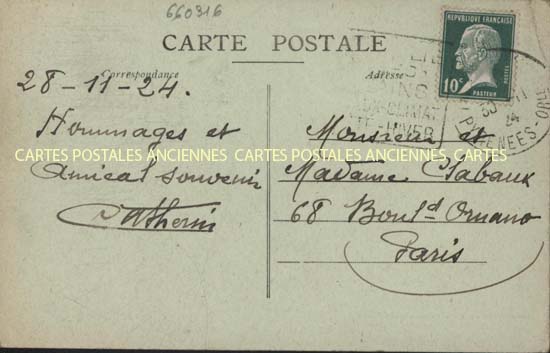 660316
CARTE POSTALE
Correspondance
Adresse
28-11-24.
Hommages et
amical souvenir
Monsieur et
Madame
68 Boul.d Ornano
Paris
REPUBLIQUE FRANÇAISE
10c
POSTES
PASTEUR
CLIMAT
HIVER
30 11
24
PYRENEES
CARTES POSTALES ANCIENNES CARTES POSTALES ANCIENNES